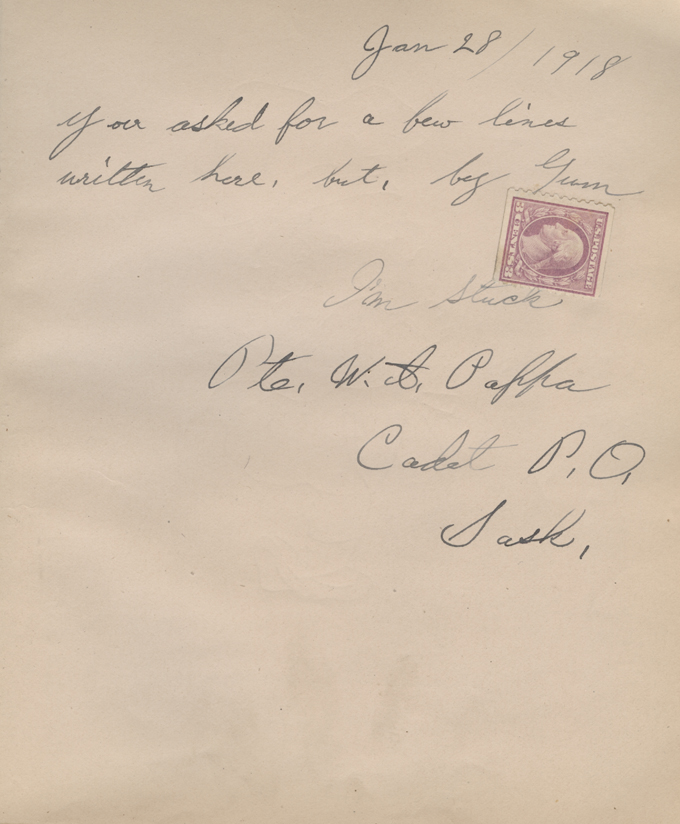 Jan 28/1918
You asked for a few lines
written here, but, by Gum
U.S. POSTAGE
3 CENTS 3
I'm stuck
Pte. W. A. Pappa
Cadet P.O.
Sask,